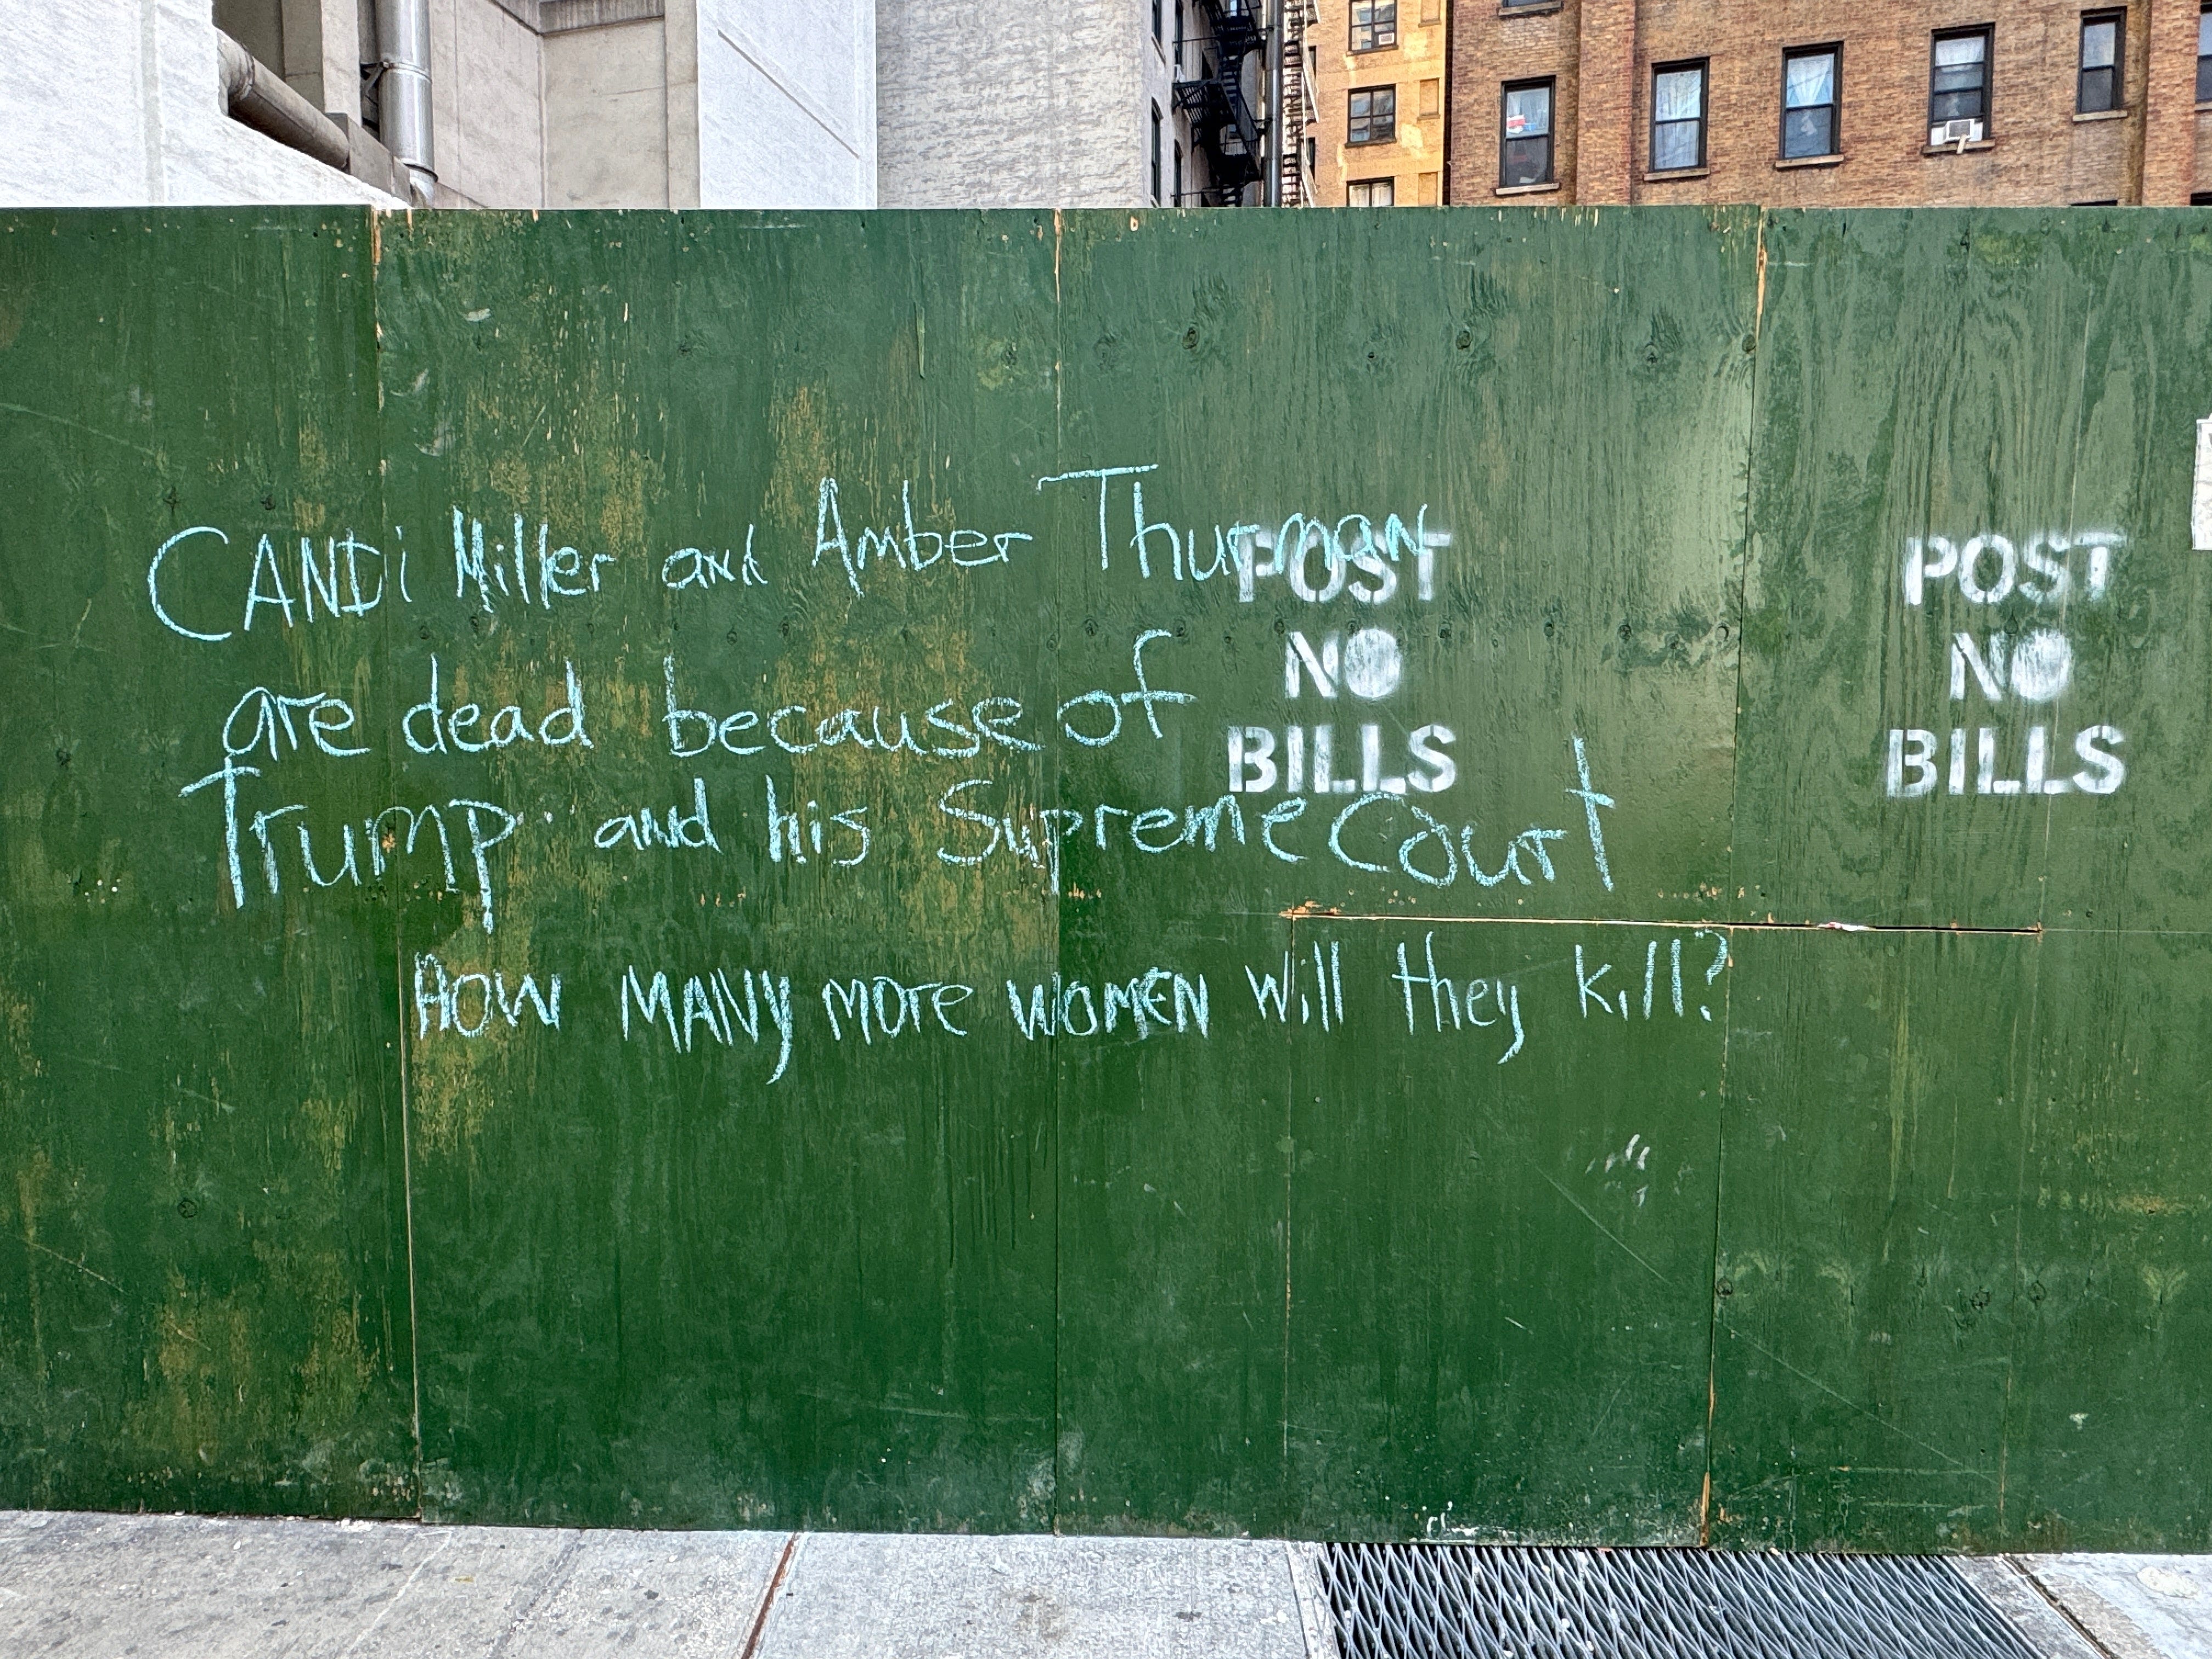 CANDi Miller and Amber Thurman
are dead because of
Trump and his Supreme Court
HOW MANY more WOMEN will they kill?
POST
NO
BILLS
POST
NO
BILLS